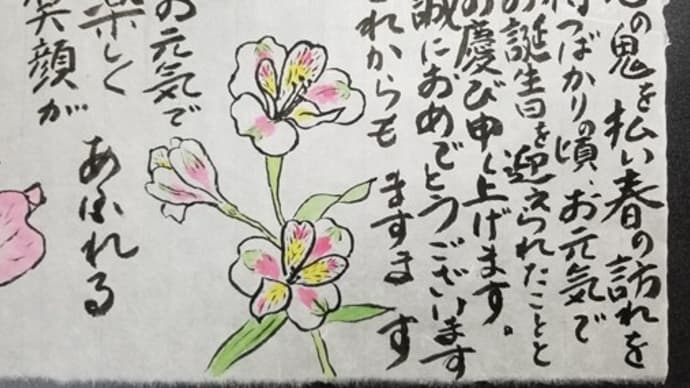 の鬼を払い春の訪れを
待つばかりの頃、お元気で
お誕生日を迎えられたことと
お慶び申し上げます。
誠におめでとうございます
これからも ますます
お元気で
楽しく
笑顔が あふれる